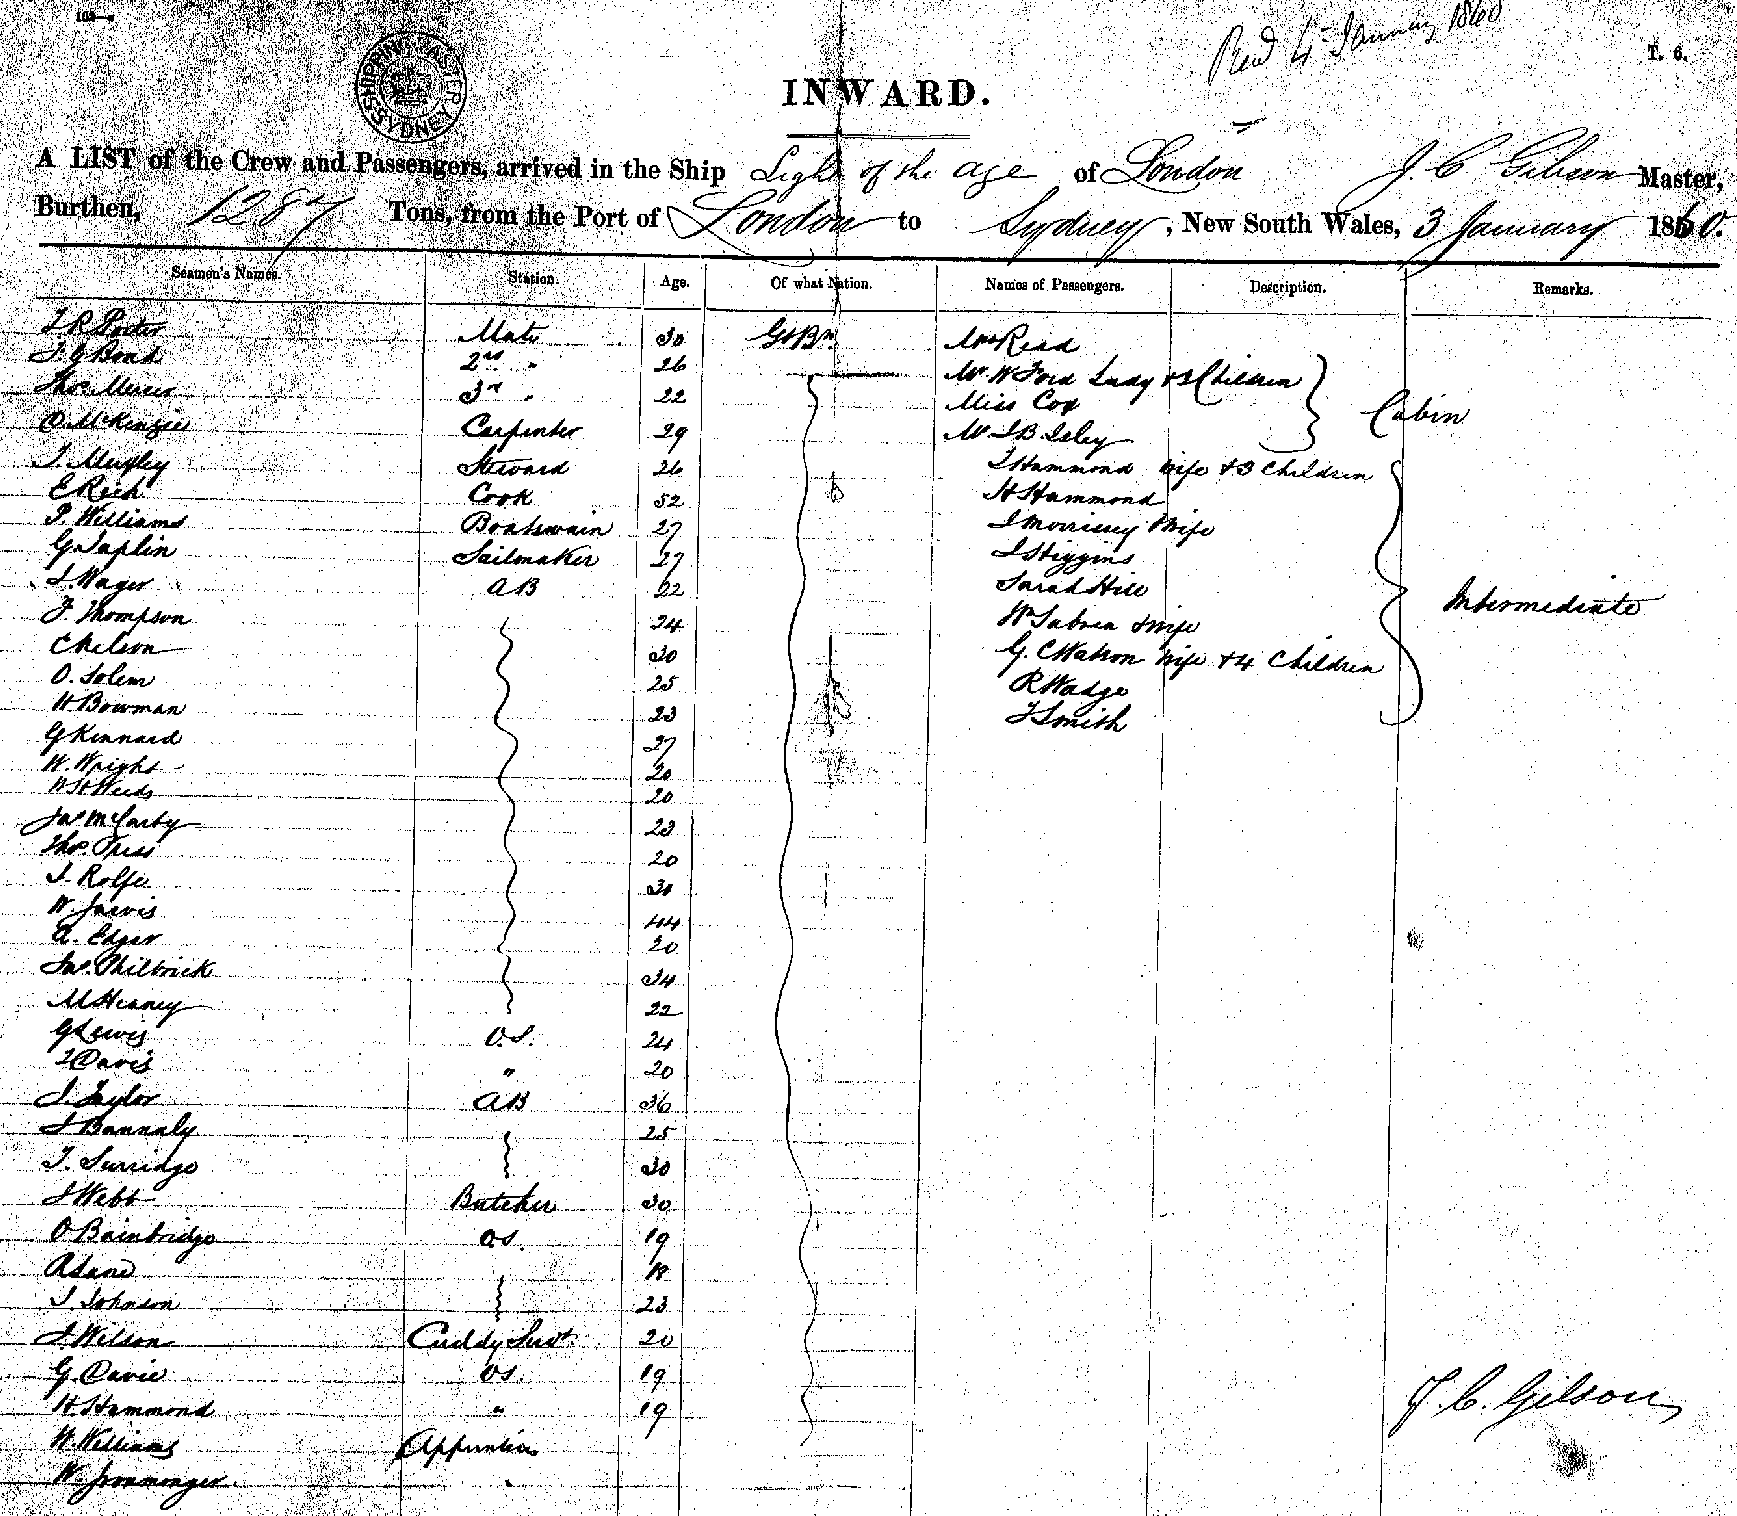 Recd 4 January 1860
T. 6.
SHIPPING MASTER SYDNEY
INWARD.
A LIST of the Crew and Passengers, arrived in the Ship Light of the Age of London J. C Gibson Master,
Burthen, 1287 Tons, from the Port of London to Sydney, New South Wales, 3 January 1860.
Seamen's Names. Station. Age. Of what Nation. Names of Passengers. Description. Remarks.
J R Porter Mate 30 Gt Bn Mrs Read
J. G Bond 2nd " 26 Mr W Ford Lady & 3 Children
Thos Mercer 3rd " 22 Miss Cox Cabin
D. McKenzie Carpenter 29 Mr J B
Steward 26 J Hammond wife & 3 Children
E Rich Cook 52 H Hammond
P. Williams Boatswain 27 J Morrissey & wife
G Taplin Sailmaker 27 J Higgins
J. Wager AB 22 Sarah Hill Intermediate
J. Thompson 24 Wm & wife
C Nelson 30 G. C Watson wife & 4 Children
O. Solem 25 R Wadge
H Bowman 23 J Smith
G Kennard 27
W. Wright 20
20
Jas McCarty 23
Thos 20
J. Rolfe 30
W. Jarvis 44
A. Edger 20
Jas. Philbrick 34
M Heaney 22
G Lewis O.S. 24
J Davis " 20
J. Taylor AB 36
J Bannaly 25
T. Surridge 30
J Webb Butcher 30
O Bainbridge O.S. 19
A Lane 18
J Johnson 23
J. Wilson Cuddy Servt 20
G. Davie OS. 19
H. Hammond " 19
W. Williams Apprentice
W. Ironmonger "
J. C. Gibson